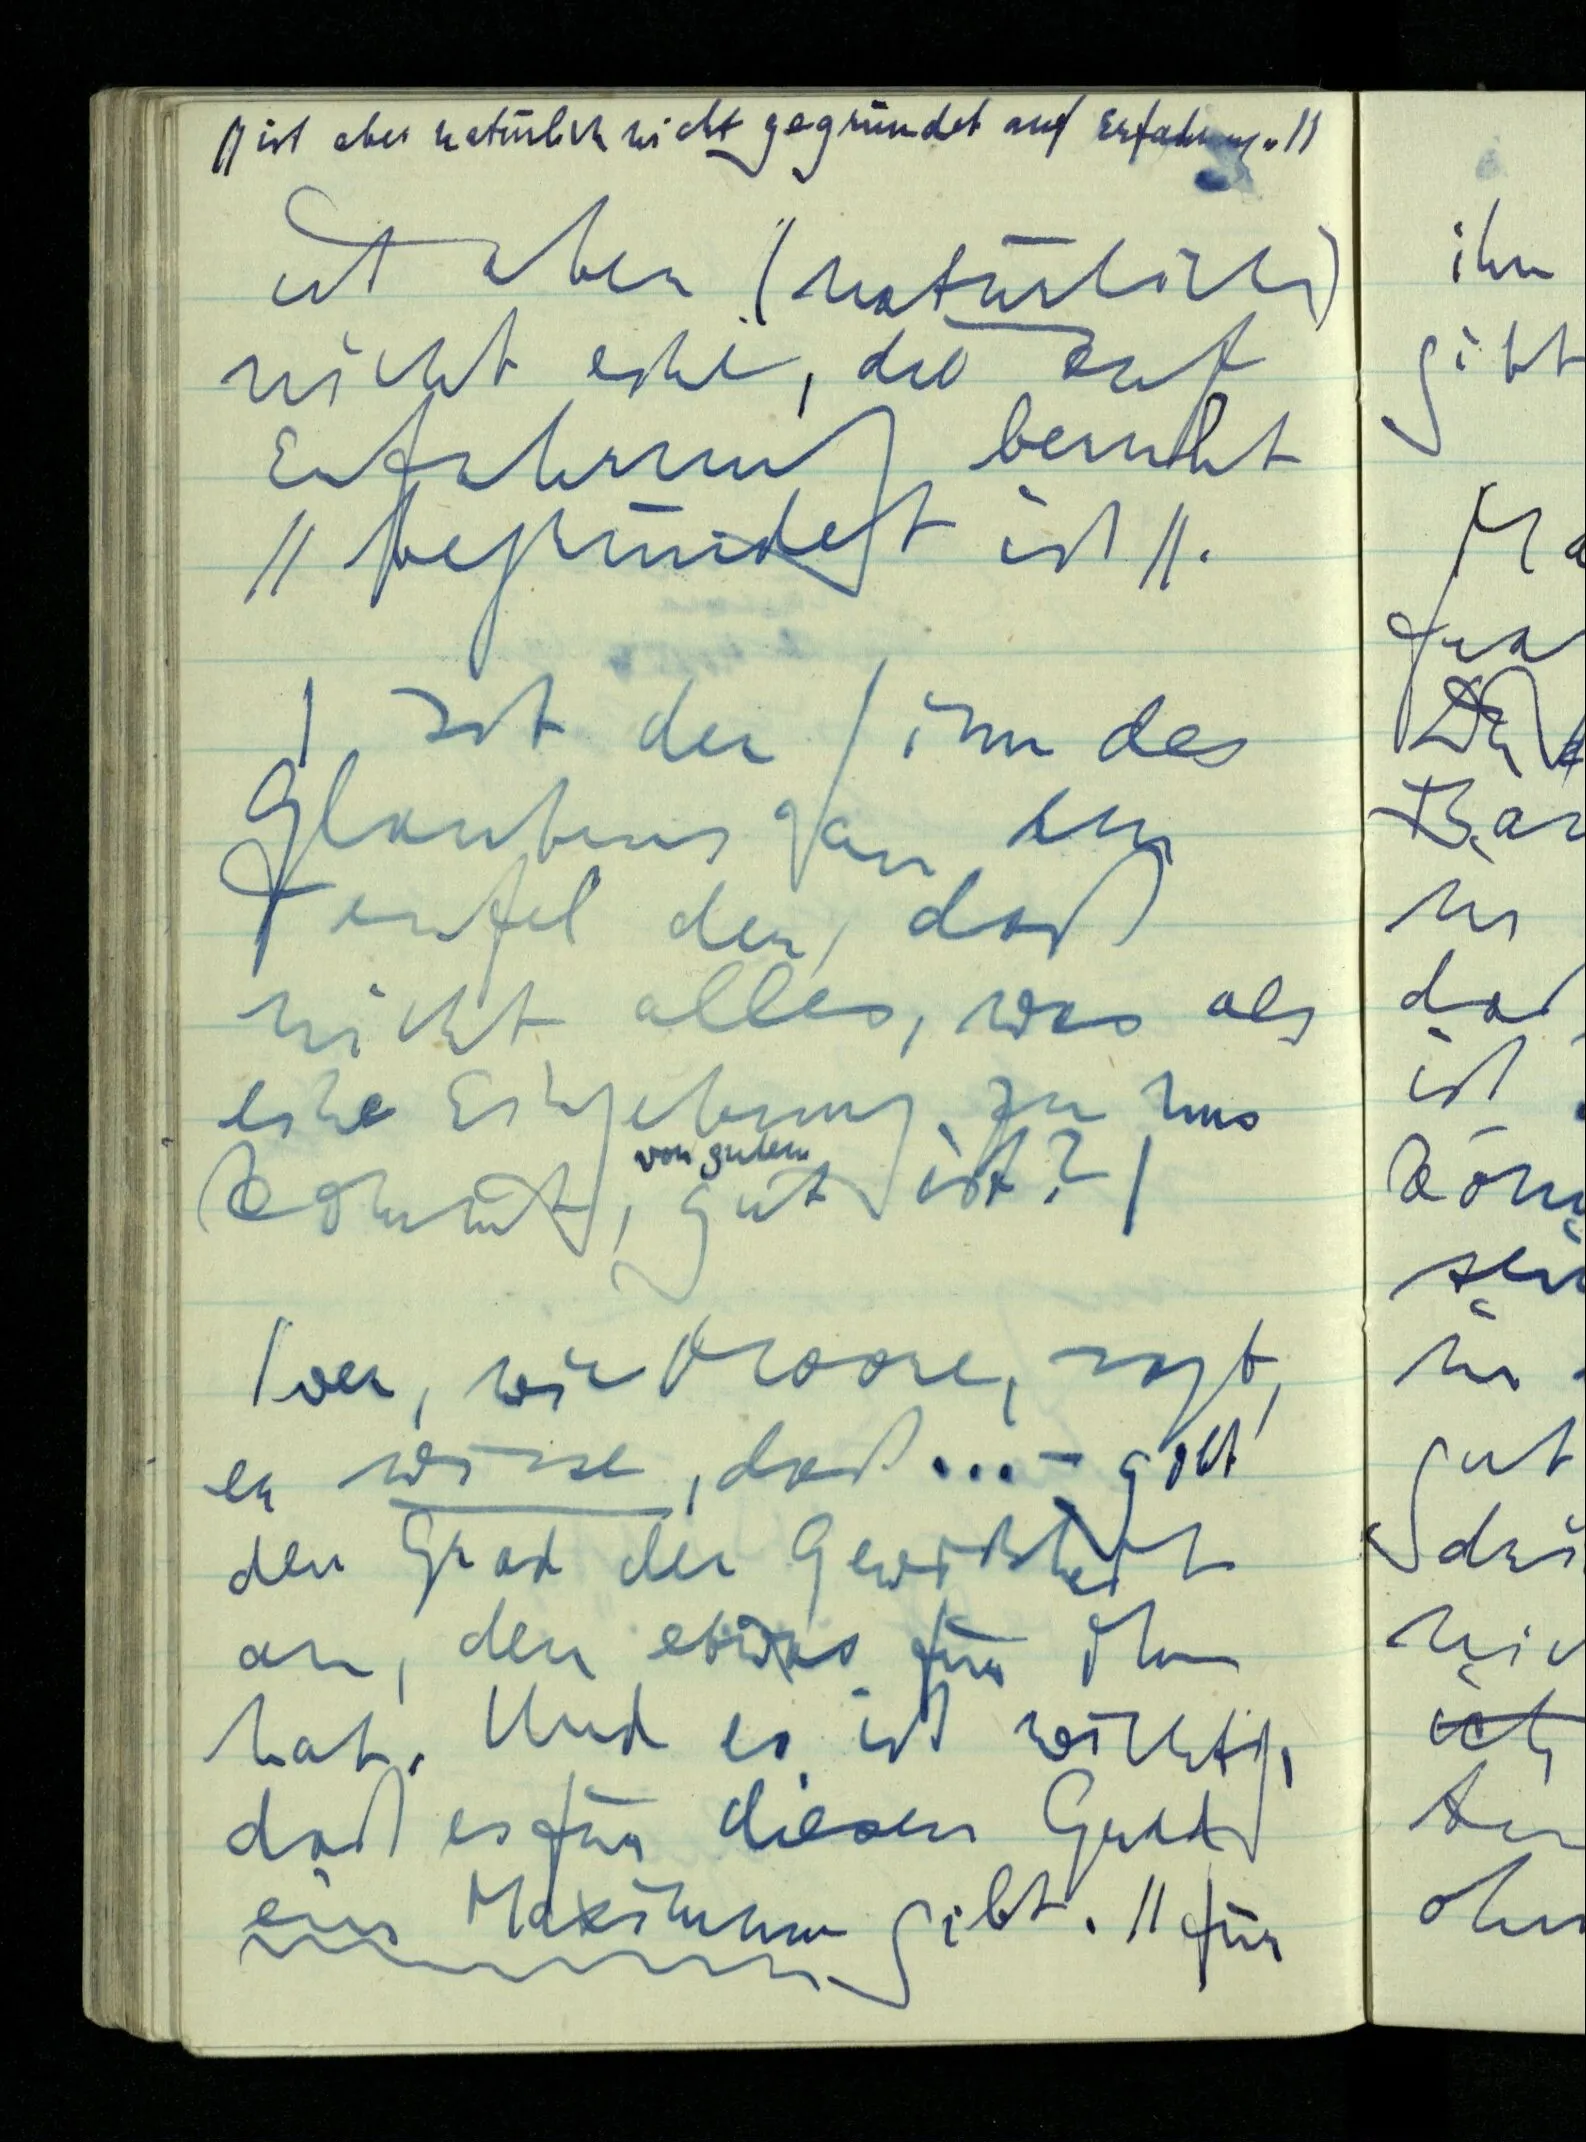 // ist aber natürlich nicht gegründet auf Erfahrung. //
ist aber (natürlich)
nicht eine, die auf
Erfahrung beruht
// begründet ist //.
| Ist der Sinn des
Glaubens an den
Teufel der, daß
nicht alles, was als
eine Eingebung zu uns
von gutem
kommt, gut ist? |
Wer, wie Moore, sagt,
er wisse, daß ... – gibt
den Grad der Gewißheit
an, den etwas für ihn
hat. Und es ist wichtig,
daß es für diesen Grad
ein Maximum gibt. // für
ihn
gibt
daß
ist
gut